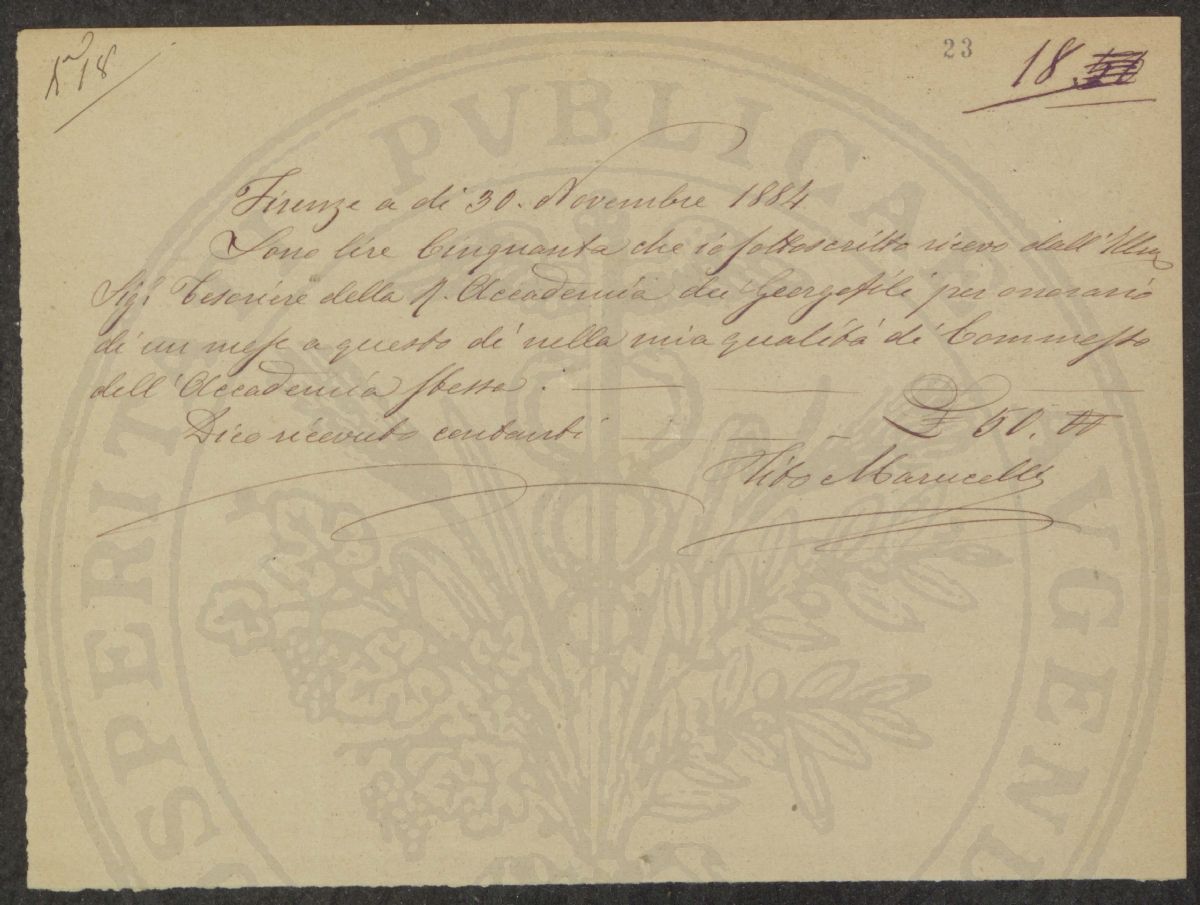 N° 18
23
18
Firenze a di 30. Novembre 1884
Sono lire Cinquanta che io sottoscritto ricevo dall'Illmo
Sigr Tesoriere della R. Accademia dei Georgofili per onorario
di un mese a questo dì nella mia qualità di Commesso
dell'Accademia stessa.
Dico ricevuto contanti £ 50.
Tito Marucelli
PROSPERITATI PVBLICAE AVGENDAE